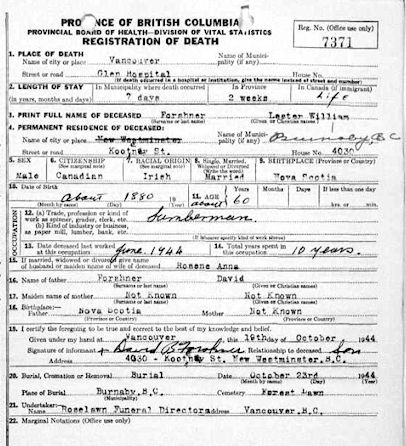 PROVINCE OF BRITISH COLUMBIA
PROVINCIAL BOARD OF HEALTH—DIVISION OF VITAL STATISTICS
REGISTRATION OF DEATH
Reg. No. (Office use only)
7371
1. PLACE OF DEATH
Name of city or place Vancouver Name of Municipality (if any)
Street or road Glen Hospital House No.
(If death occurred in a hospital or institution, give the name instead of street and number)
2. LENGTH OF STAY In Municipality where death occurred In Province In Canada (if immigrant)
(in years, months and days) 7 days 2 weeks Life
3. PRINT FULL NAME OF DECEASED Forshner Lester William
(Surname or last name) (Given or Christian names)
4. PERMANENT RESIDENCE OF DECEASED:
Name of city or place New Westminster Name of Municipality (if any) Burnaby, B.C.
Street or road Kootney St. House No. 4030
5. SEX 6. CITIZENSHIP 7. RACIAL ORIGIN 8. Single, Married, Widowed or Divorced 9. BIRTHPLACE (Province or Country)
(See marginal note) (See marginal note) (Write the word)
Male Canadian Irish Married Nova Scotia
10. Date of Birth about 1880 11. AGE Years about 60 Months Days If less than one day
(Month by name) (Day) (Year) hrs. or min.
OCCUPATION
12. (a) Trade, profession or kind of work as spinner, grader, clerk, etc. Lumberman.
(b) Kind of industry or business, as paper mill, lumber, bank, etc.
(If labourer specify kind of work above)
13. Date deceased last worked at this occupation June. 1944 14. Total years spent in this occupation 10 years.
15. If married, widowed or divorced give name of husband or maiden name of wife of deceased Rosene Anna
16. Name of father Forshner David
(Surname or last name) (Given or Christian names)
17. Maiden name of mother Not Known Not Known
(Surname or last name) (Given or Christian names)
18. Birthplace:—
Father Nova Scotia Mother Not Known
(Province or Country) (Province or Country)
19. I certify the foregoing to be true and correct to the best of my knowledge and belief.
Given under my hand at Vancouver this 19th day of October 1944
Signature of informant David B Forshner Relationship to deceased Son
Address 4030 Kootney St. New Westminster, B.C.
20. Burial, Cremation or Removal Burial Date October 23rd 1944
(Month by name) (Day) (Year)
Place of Burial Burnaby, B.C. Cemetery Forest Lawn
(Municipality)
21. Undertaker:—
Name Roselawn Funeral Directors Address Vancouver, B.C.
22. Marginal Notations (Office use only)